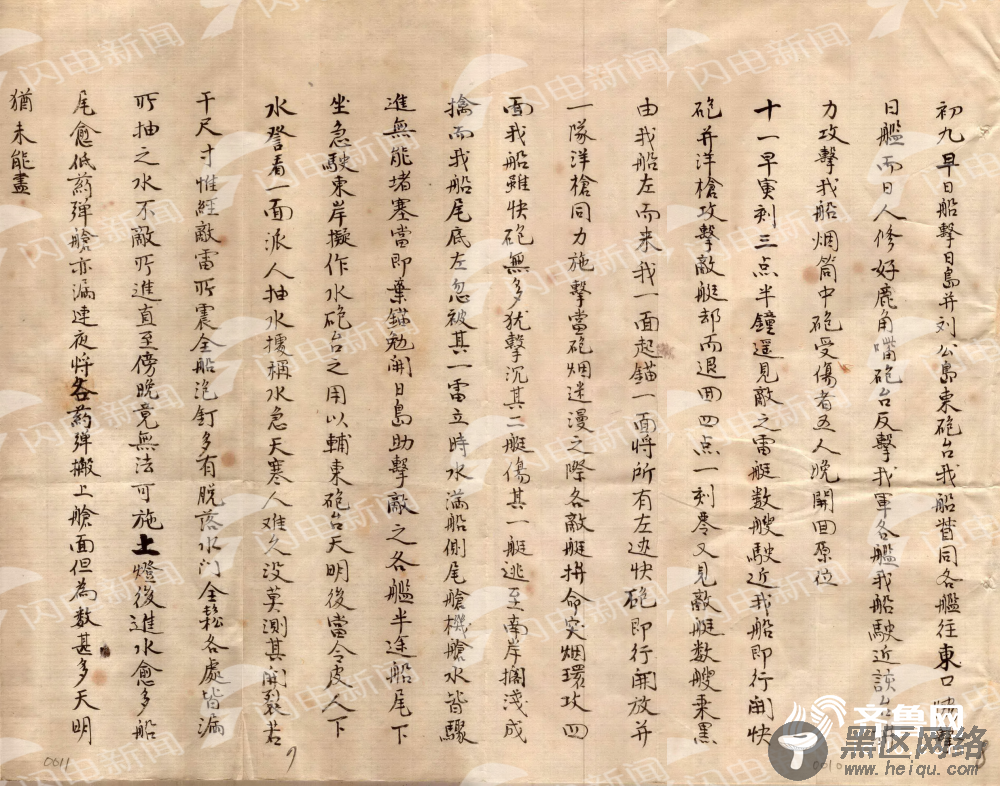 初九早日船擊日島并刘公島東砲台我船督同各艦往東口
日艦而日人修好鹿角嘴砲台反擊我軍各艦我船駛近該台
力攻擊我船烟筒中砲受傷者五人晚開回原位
十一早寅刻三点半鐘遥見敵之雷艇数艘駛近我船即行開快
砲并洋槍攻擊敵艇却而退四点一刻零又見敵艇数艘乘黑
由我船左而来我一面起錨一面將所有左边快砲即行開放并
一隊洋槍同力施擊當砲烟迷漫之際各敵艇拼命突烟環攻四
面我船雖快砲無多犹擊沉其二艇傷其一艇逃至南岸擱淺成
擒而我船尾底左忽被其一雷立時水滿船側尾艙機艙水皆驟
進無能堵塞當即棄錨勉開日島助擊敵之各艦半途船尾下
坐急駛東岸擬作水砲台之用以輔東砲台天明後當令皮人下
水詧看一面派人抽水據稱水急天寒人难久没莫測其開裂若
干尺寸惟經敵雷所震全船泡釘多有脱落水门全鬆各處皆漏
所抽之水不敵所進直至傍晚竟無法可施上燈後進水愈多船
尾愈低药弹艙亦漏連夜將各药弹搬上艙面但為数甚多天明
猶未能盡
0011
9
0010
闪电新闻
齐鲁网
黑区网络
www.heiqu.com